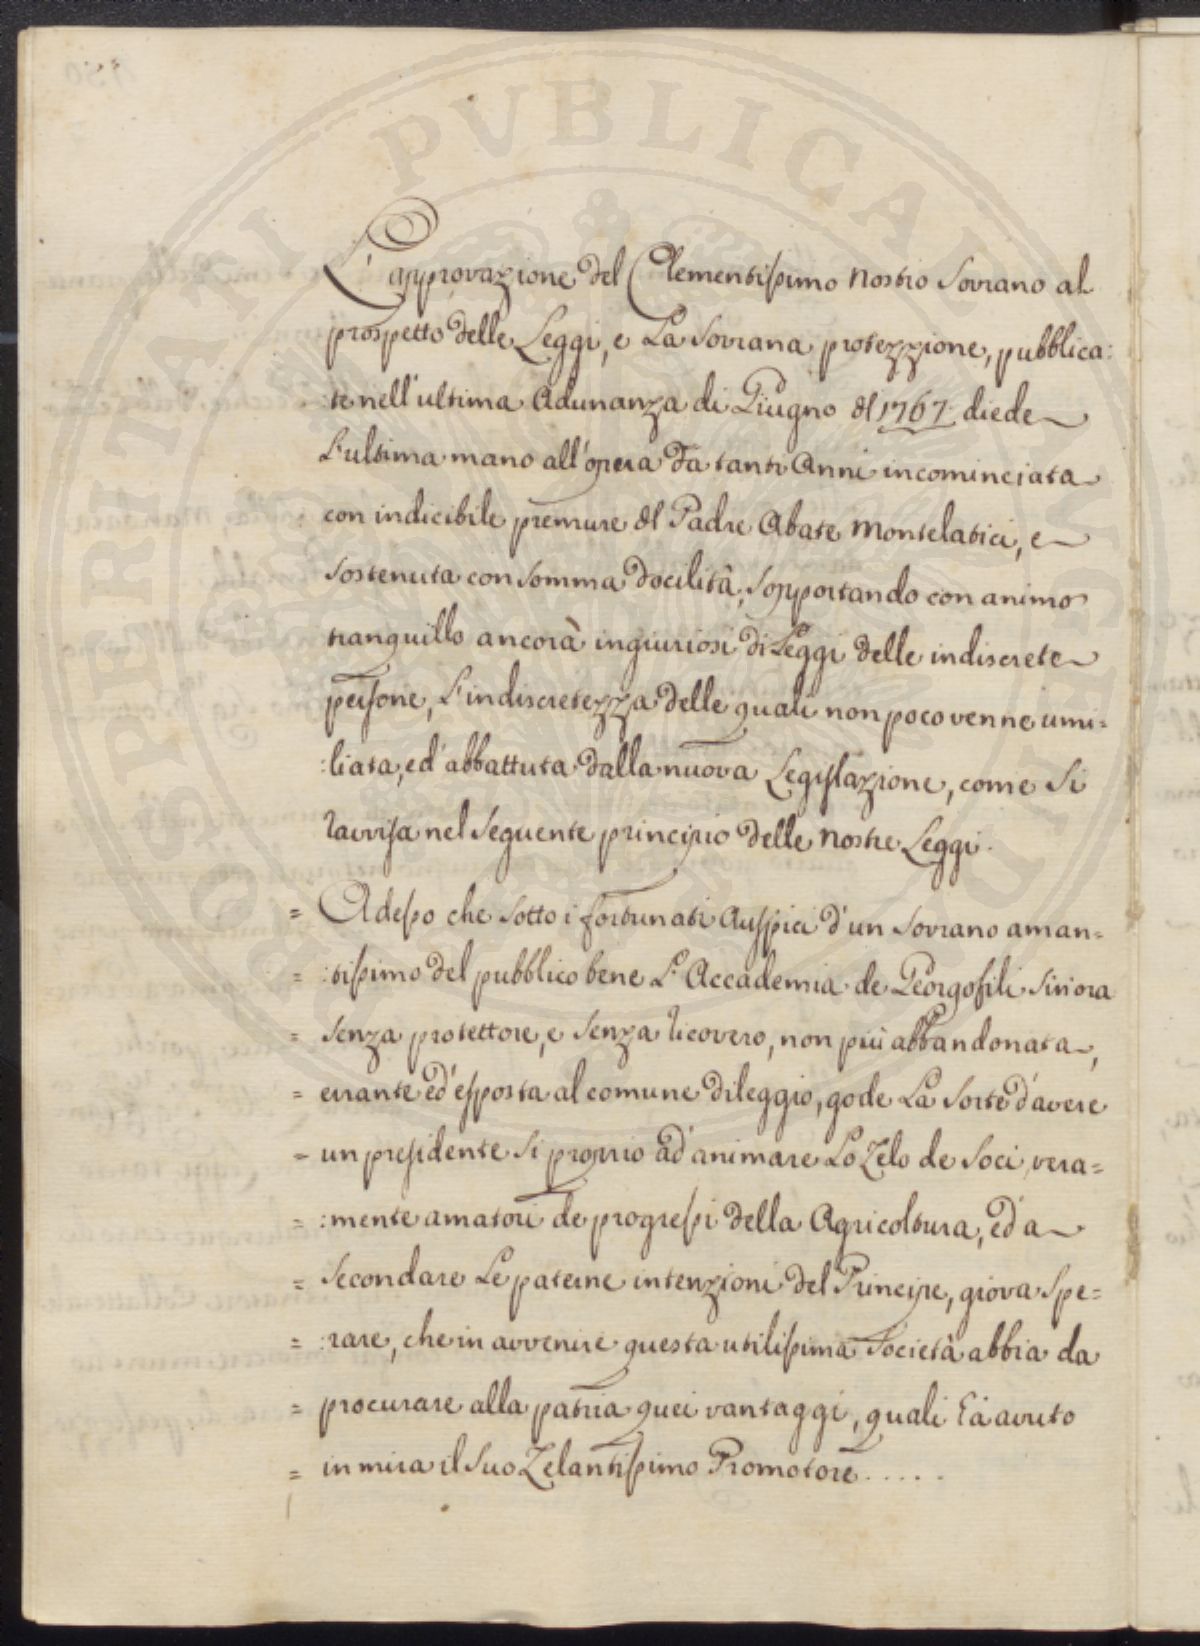 L'approvazione del Clementissimo Nostro Sovrano al
prospetto delle Leggi, e La Sovrana protezzione, pubblica:
:te nell'ultima Adunanza di Giugno del 1767. diede
L'ultima mano all'opera da tanti Anni incominciata
con indicibile premure del Padre Abate Montelatici, e
sostenuta con somma docilità, sopportando con animo
tranquillo ancorà ingiuriosi dileggi delle indiscrete
persone, L'indiscretezza delle quali non poco venne umi:
:liata, ed' abbattuta dalla nuova Legislazione, come si
ravvisa nel seguente principio delle nostre Leggi.
= Adesso che sotto i fortunati Auspici d'un Sovrano aman=
= :tissimo del pubblico bene L'Accademia de Georgofili sin'ora
= senza protettore, e senza ricovero, non più abbandonata,
= errante ed' esposta al comune dileggio, gode La sorte d'avere
= un presidente si proprio ad' animare Lo Zelo de Soci vera=
= :mente amatori de progressi della Agricoltura, ed' a
= secondare Le paterne intenzioni del Principe, giova spe=
= :rare, che in avvenire questa utilissima Società abbia da
= procurare alla patria quei vantaggi, quali à avuto
= in mira il suo Zelantissimo Promotore.....
PUBLICAE
PROSPERITATI